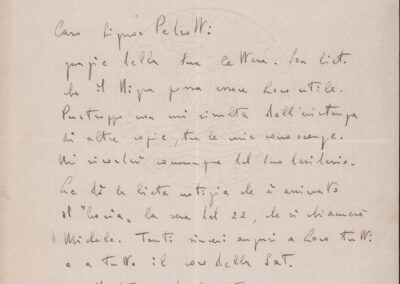 Caro Signor Pedrotti
grazie della Sua lettera. Son lieto
che il Nigra possa essere Loro utile.
Purtroppo non mi risulta dell'esistenza
di altre copie, tra le mie conoscenze.
Mi ricorderò comunque del Suo desiderio.
Le dò la lieta notizia che è arrivato
il "bocia", la sera del 22, che si chiamerà
Michele. Tanti sinceri auguri a Loro tutti
e a tutto il coro della Sat.